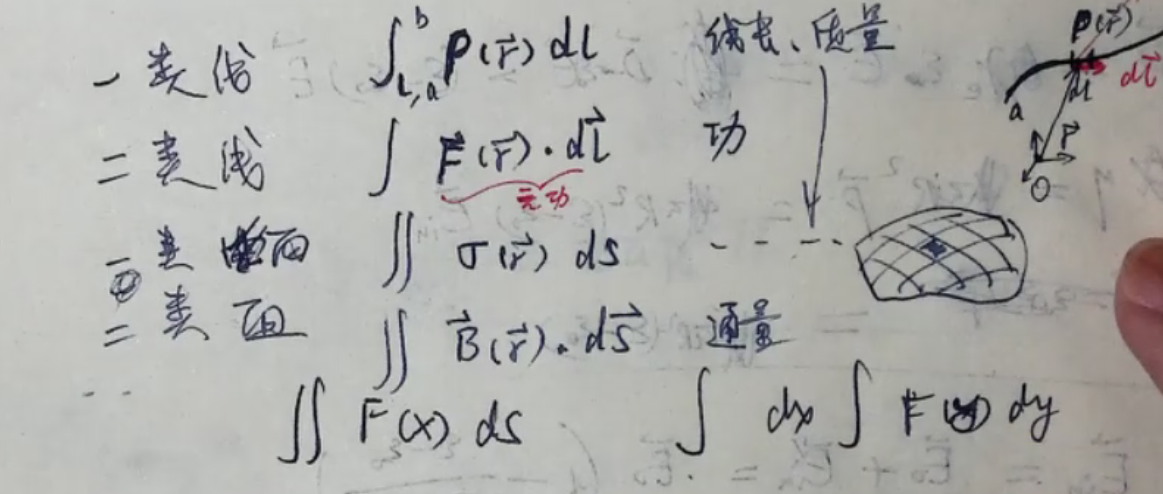 一类线 ∫_{L,a}^{b} ρ(r⃗) dl 线长、质量
二类线 ∫ F⃗(r⃗)·dl⃗ 功
元功
一类面 ∬ σ(r⃗) ds ----
二类面 ∬ B⃗(r⃗)·dS⃗ 通量
∬ F(x) ds ∫ dx ∫ F(y) dy
ρ(r⃗)
dl dl⃗
a
r⃗
O